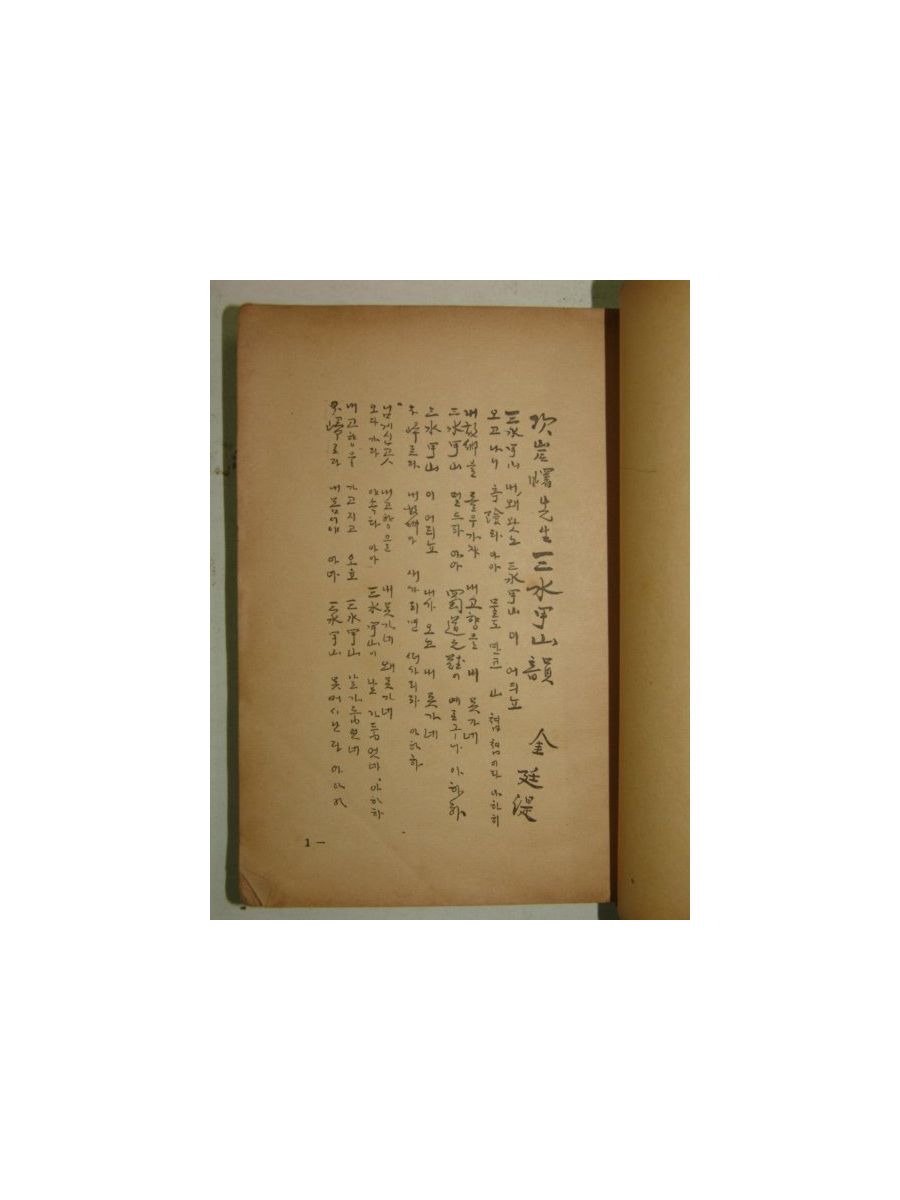 次岸曙先生三水甲山韻 金廷湜
三水甲山 내 왜 왔노 三水甲山 이 어듸뇨
오고나니 奇險타 아아 물도 만코 山 疊疊이라 아하하
내 故鄕을 돌우가자 내 고향을 내 못가네
三水甲山 멀드라 아아 蜀道之難이 예로구나 아하하
三水甲山 이 어듸뇨 내가 오고 내 못가네
不歸로다 내 故鄕아 새가 되면 떠가리라 아하하
님 게신 곳 내 고향을 내 못가네 왜 못가네
오다 가다 야속타 아아 三水甲山이 날 가둡엇네 아하하
내 고향을 가고지고 오호 三水甲山 날 가둡엇네
不歸로다 내 몸이야 아아 三水甲山 못 버서난다 아하하
1 —